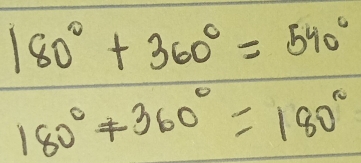 180° + 360° = 540°
180° + 360° = 180°